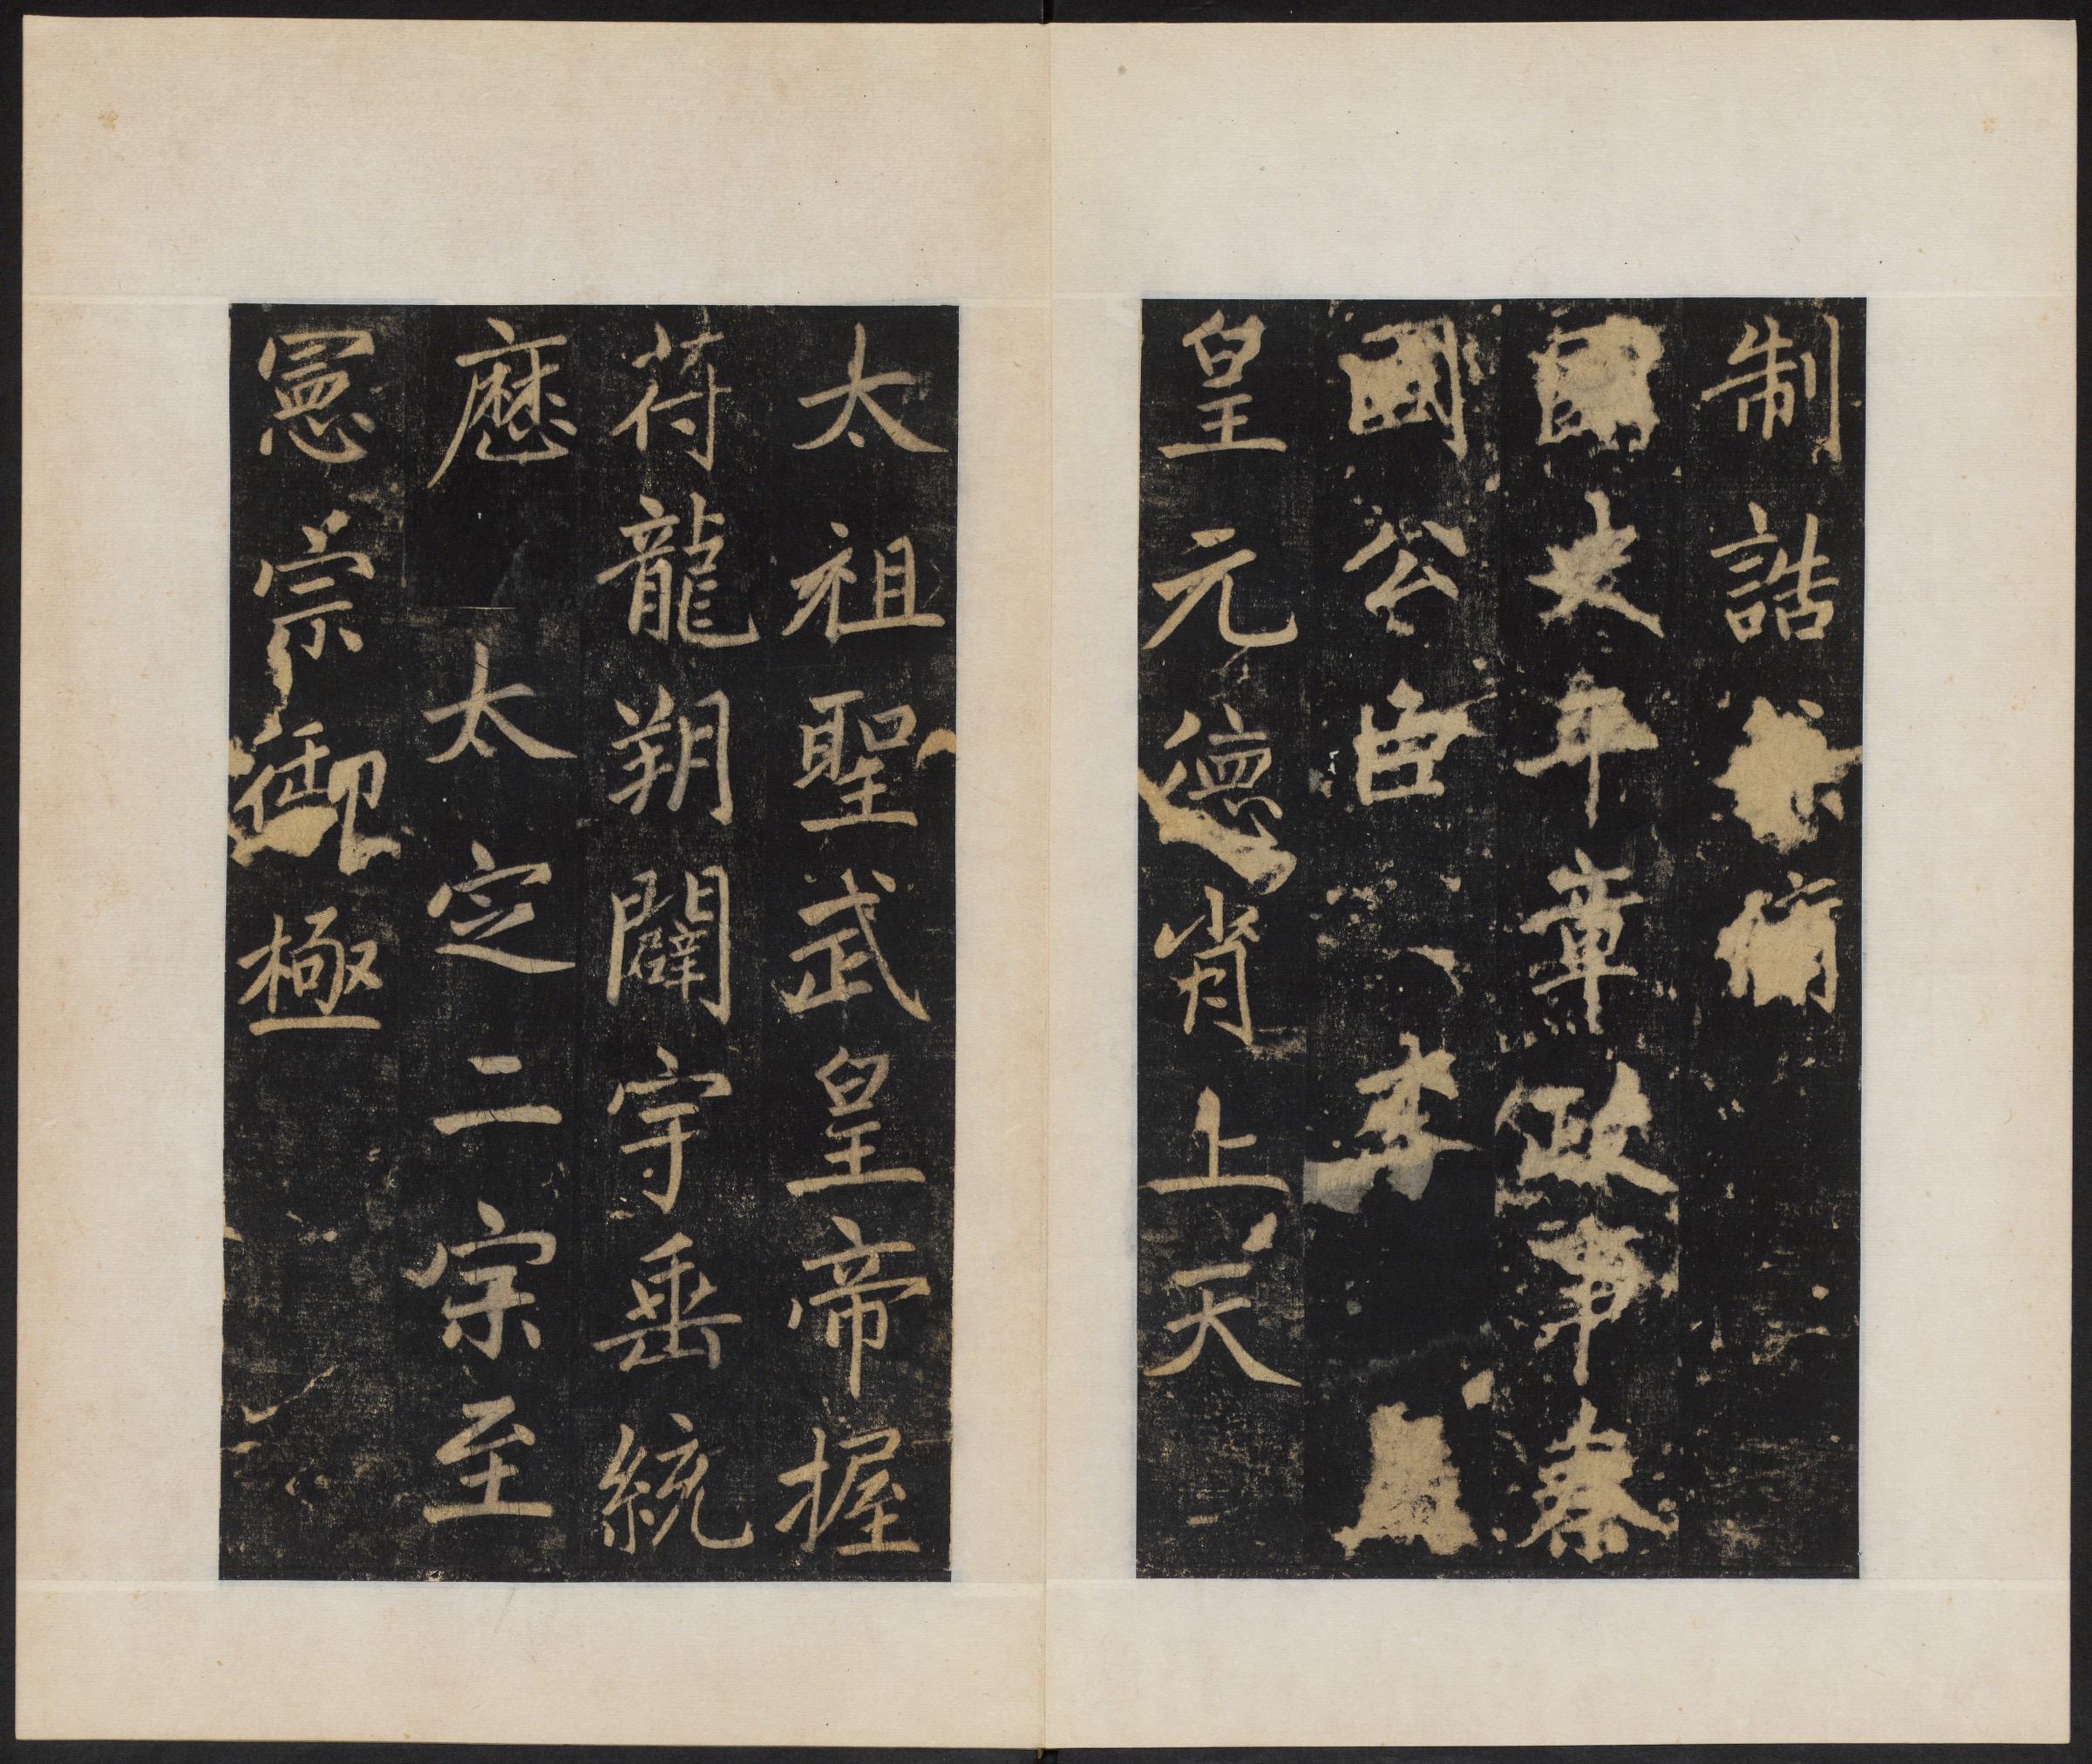 制誥
史平章政事秦
國公臣李
皇元德肖上天
太祖聖武皇帝握
符龍朔闢宇垂統
歷太定二宗至
憲宗御極